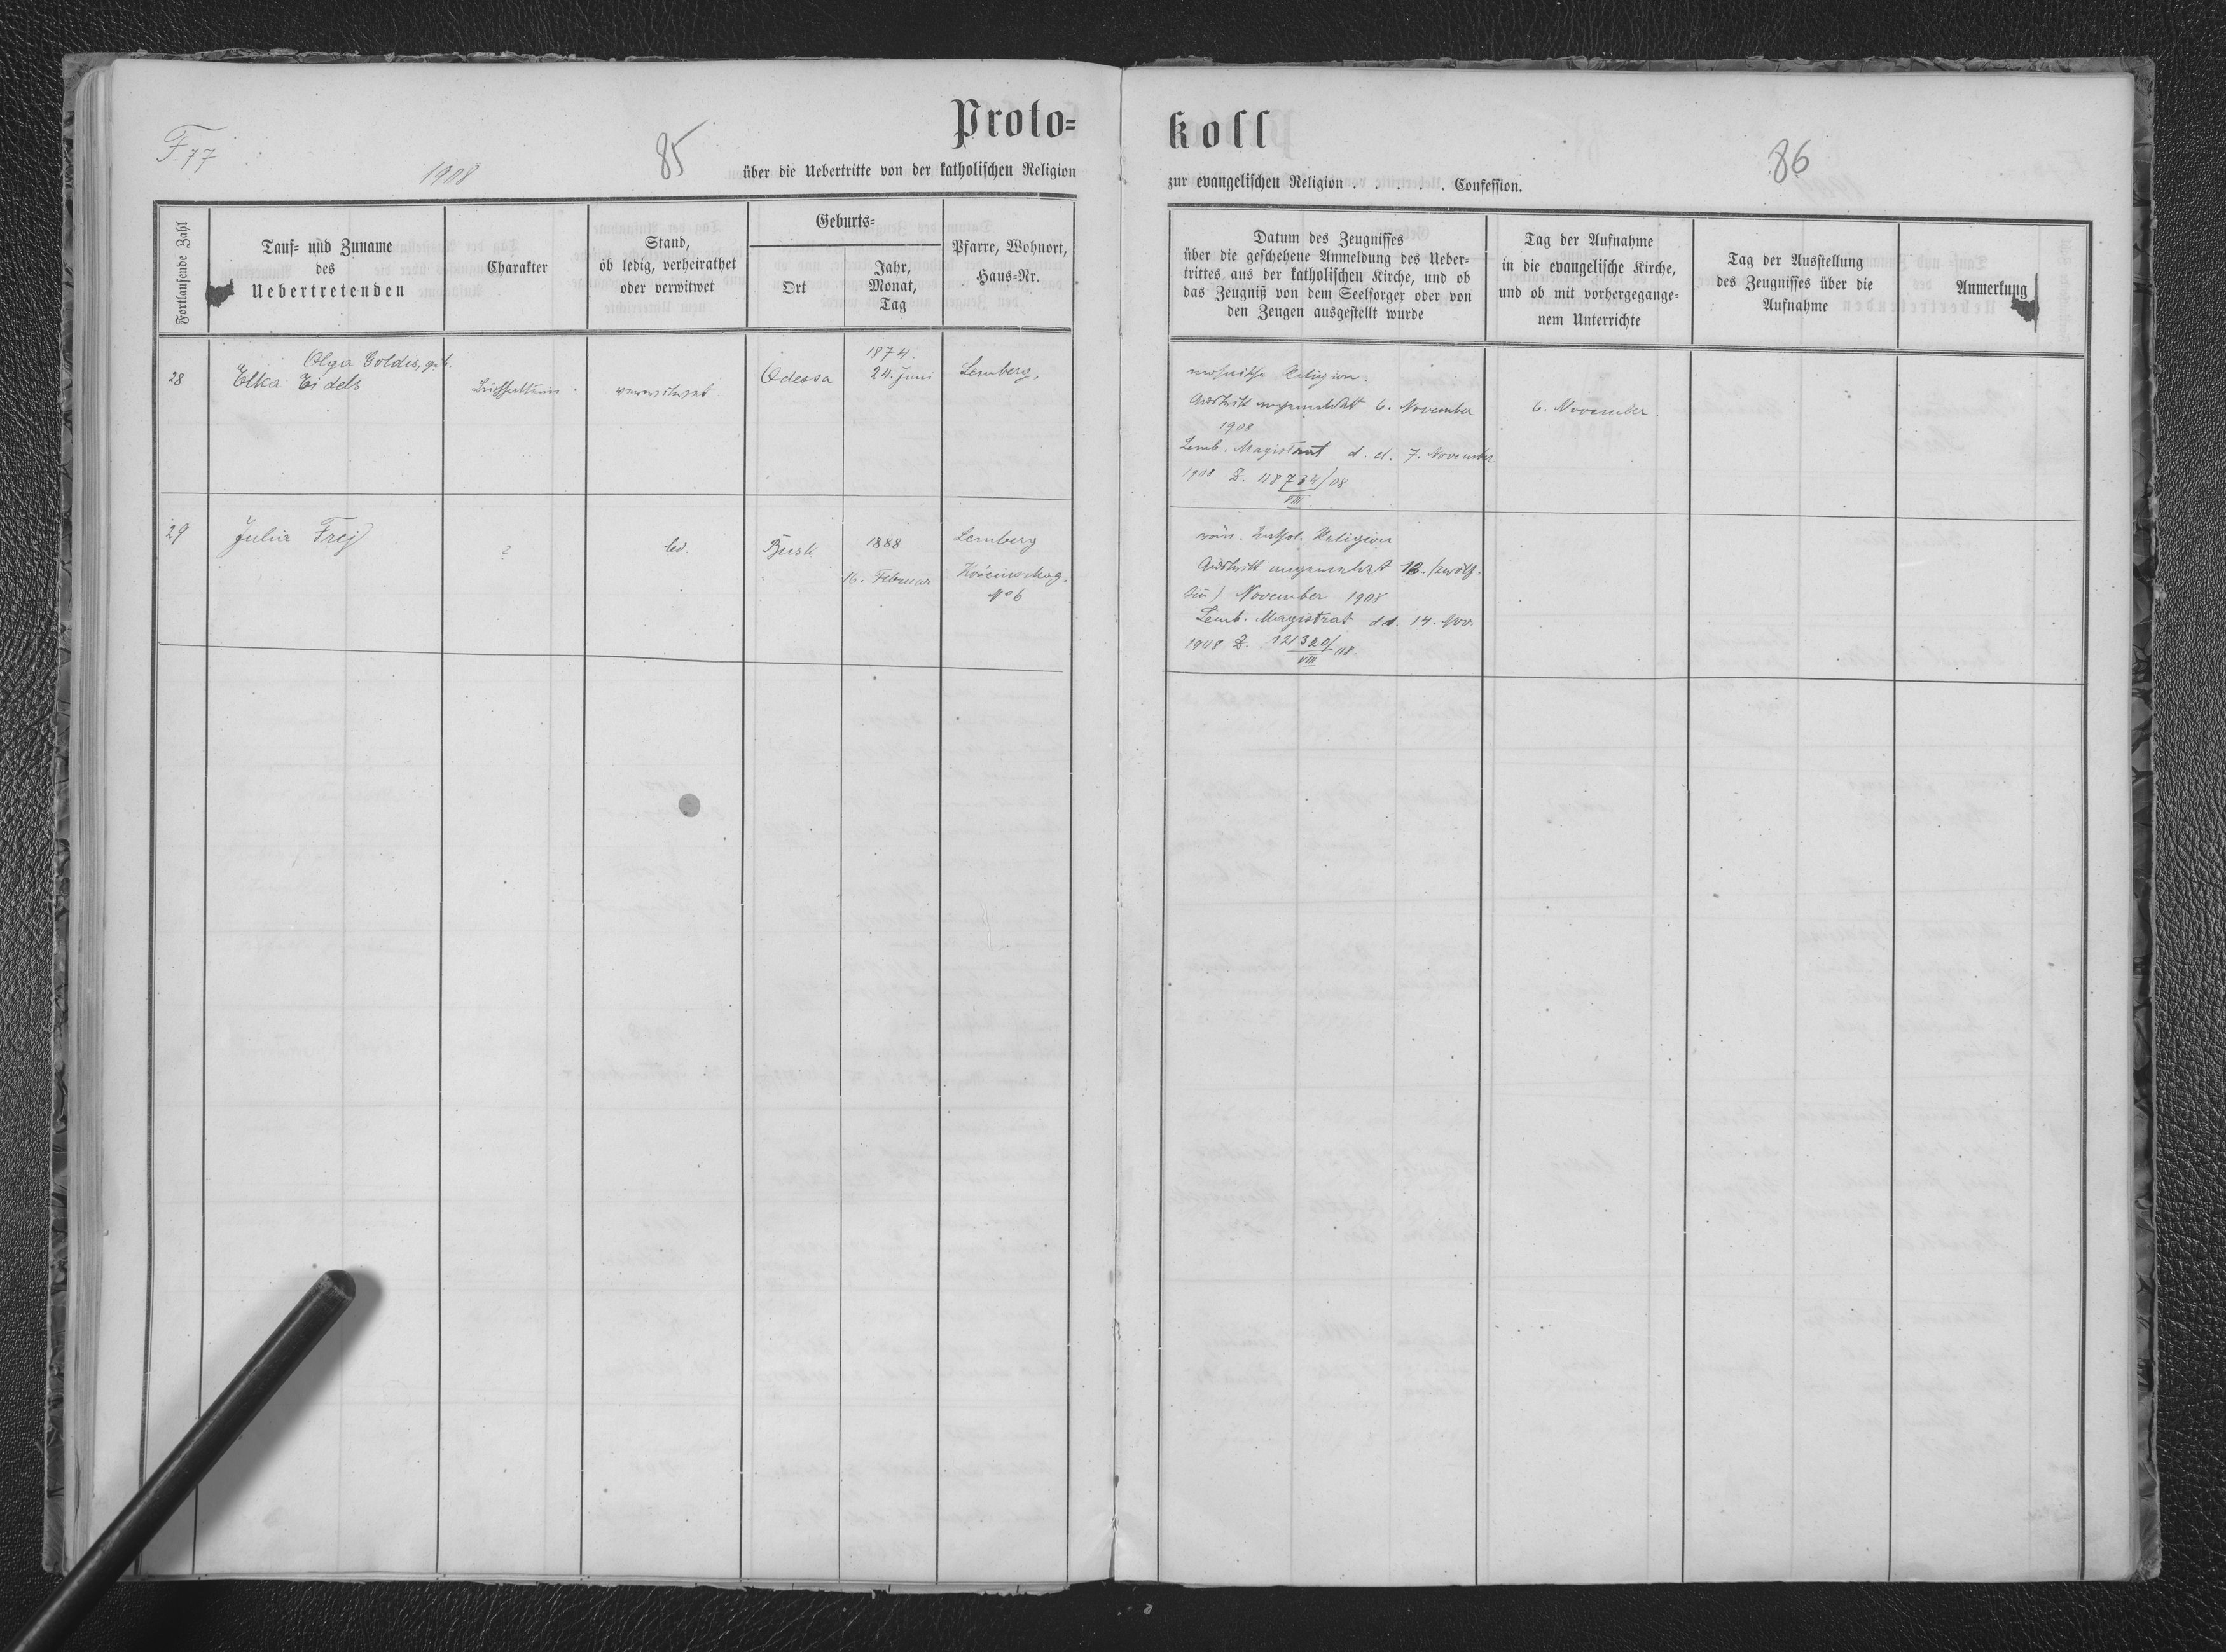 F. 77
1908
85
Proto=
über die Uebertritte von der katholischen Religion
Fortlaufende Zahl
Tauf= und Zuname
des
Uebertretenden
Charakter
Stand,
ob ledig, verheirathet
oder verwitwet
Geburts=
Ort
Jahr,
Monat,
Tag
Pfarre, Wohnort,
Haus-Nr.
28
Olga Goldis, geb.
Elka Eidels
Odessa
1874.
24. Juni
Lemberg,
29
Julia Frej
?
led.
Busk
1888
16. Februar
Lemberg
No 6
koll
86
zur evangelischen Religion . . . . . . Confession.
Datum des Zeugnisses
über die geschehene Anmeldung des Ueber-
trittes aus der katholischen Kirche, und ob
das Zeugniß von dem Seelsorger oder von
den Zeugen ausgestellt wurde
Tag der Aufnahme
in die evangelische Kirche,
und ob mit vorhergegange=
nem Unterrichte
Tag der Ausstellung
des Zeugnisses über die
Aufnahme
Anmerkung
mosaische Religion.
Austritt angemeldet 6. November
1908
Lemb. Magistrat d. d. 7. November
1908 Z. 118734/08
VIII
6. November.
röm. kathol. Religion
Austritt angemeldet
November 1908
Lemb. Magistrat dd. 14. Nov.
1908 Z. 121320/08
VIII